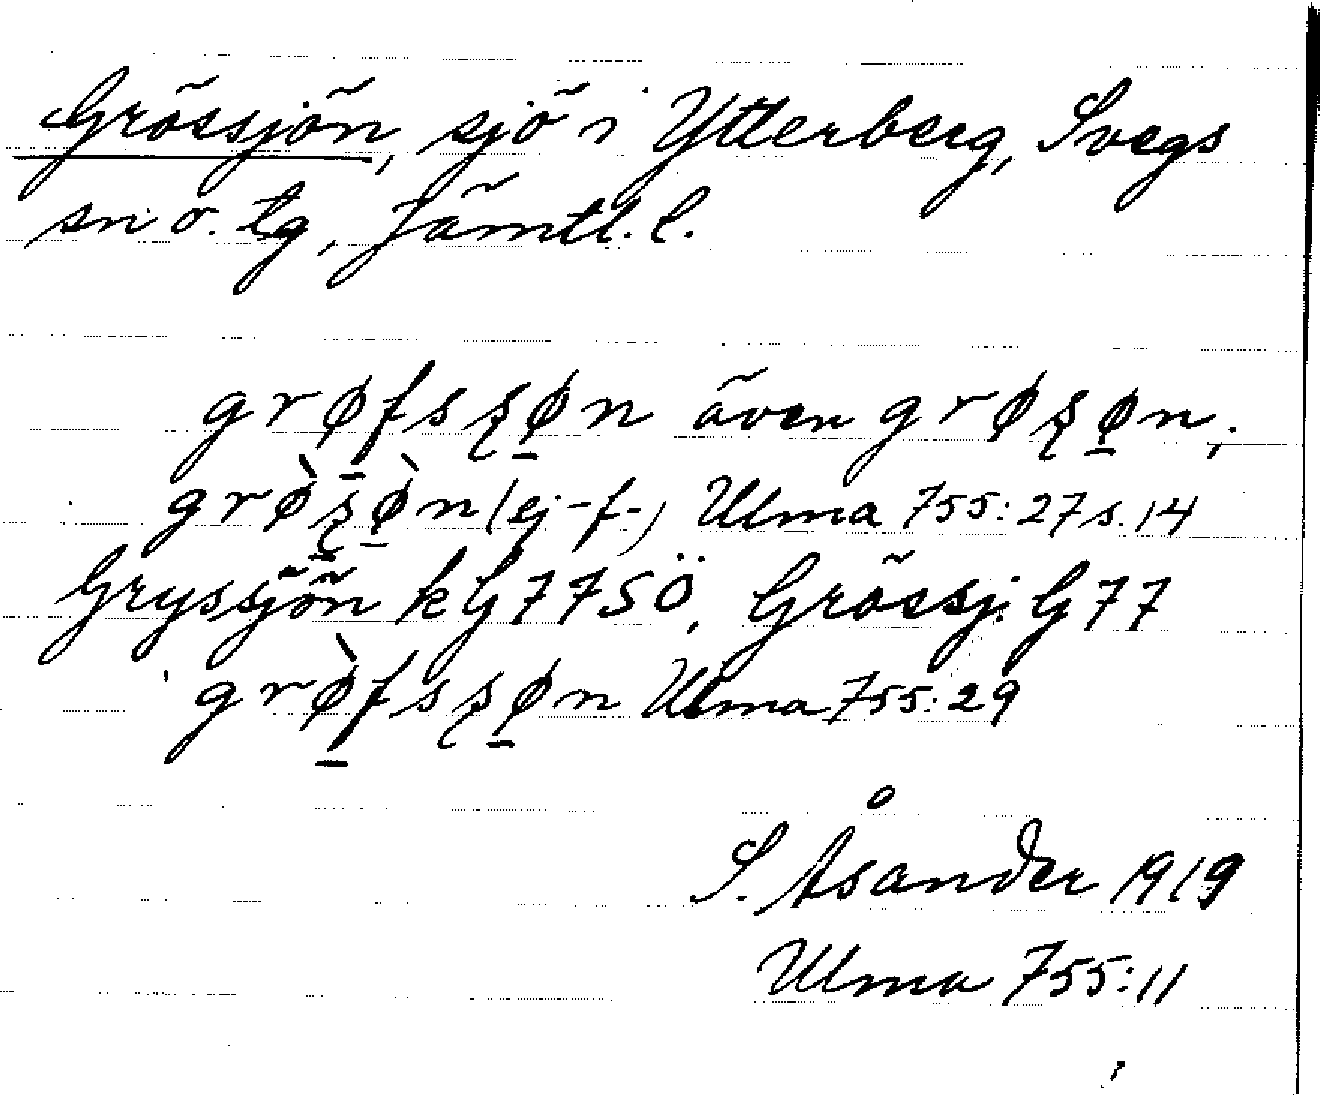 Grössjön, sjö i Ytterberg, Svegs
sn o. tg, Jämtl. l.
grøfsʂø̠n även grøʂø̠n,.
grø̀ʂø̠̀n (ej -f-) Ulma 755:27 s. 14
Gryssjön kG77SÖ, Grössj. G77
grø̠̀fsʂø̠n Ulma 755:29
S. Åsander 1919
Ulma 755:11